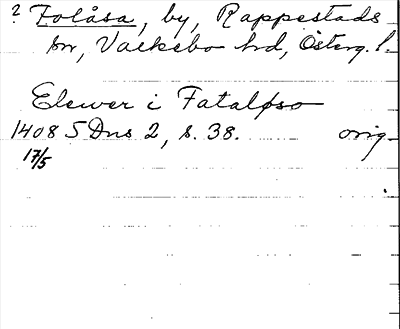 ? Folåsa, by, Rappestads
sn, Valkebo hd, Österg. l.
Elewer i Fataløso
1408 S Dns 2, s. 38. orig.
17/5